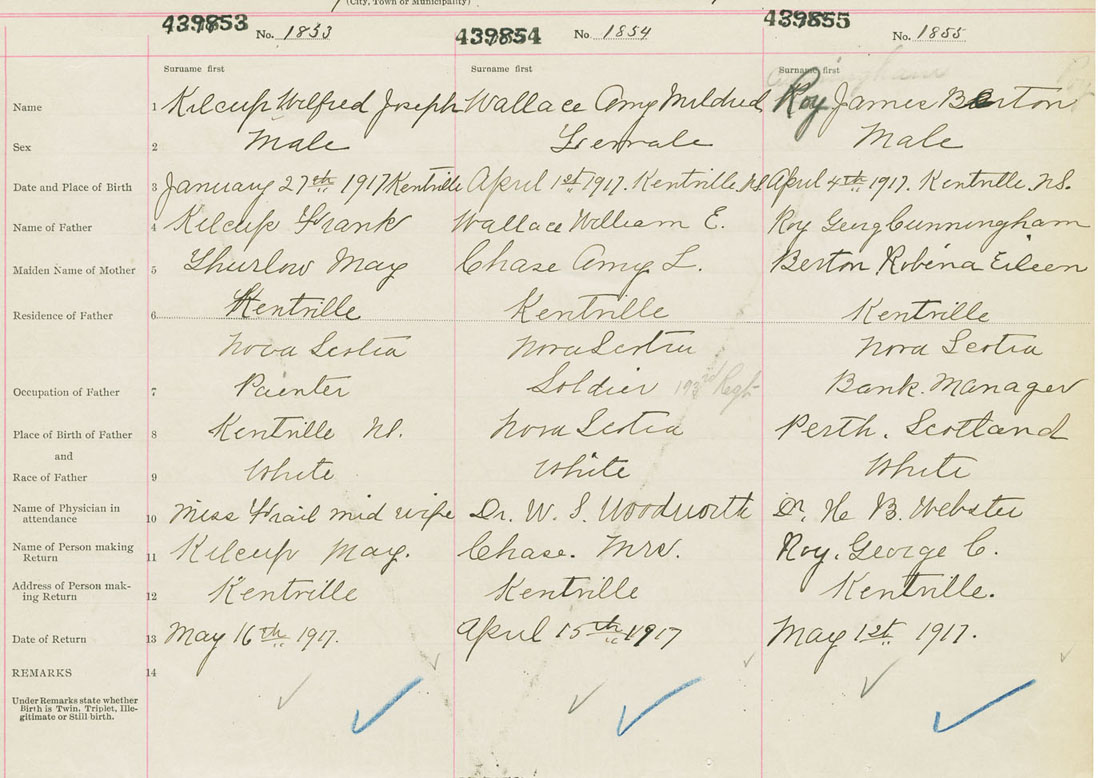 (City, Town or Municipality)
439853 No. 1853 439854 No. 1854 439855 No. 1855
Surname first Surname first Surname first
Name 1 Kilcup Wilfred Joseph Wallace Amy Mildred Roy James Berton
Sex 2 Male Female Male
Date and Place of Birth 3 January 27th 1917 Kentville April 1st 1917. Kentville N.S. April 4th 1917. Kentville N.S.
Name of Father 4 Kilcup Frank Wallace William E. Roy Georg Cunningham
Maiden Name of Mother 5 Thurlow May Chase Amy L. Berton Robena Eileen
Residence of Father 6 Kentville Kentville Kentville
Nova Scotia Nova Scotia Nova Scotia
Occupation of Father 7 Painter Soldier 193rd Regt Bank Manager
Place of Birth of Father 8 Kentville N.S. Nova Scotia Perth. Scotland
and
Race of Father 9 White White White
Name of Physician in
attendance 10 Miss Frail mid wife Dr. W. S. Woodworth Dr. H. B. Webster
Name of Person making
Return 11 Kilcup May. Chase. Mrs. Roy. George C.
Address of Person mak-
ing Return 12 Kentville Kentville Kentville.
Date of Return 13 May 16th 1917. April 15th 1917 May 1st 1917.
REMARKS 14
Under Remarks state whether
Birth is Twin, Triplet, Ille-
gitimate or Still birth.